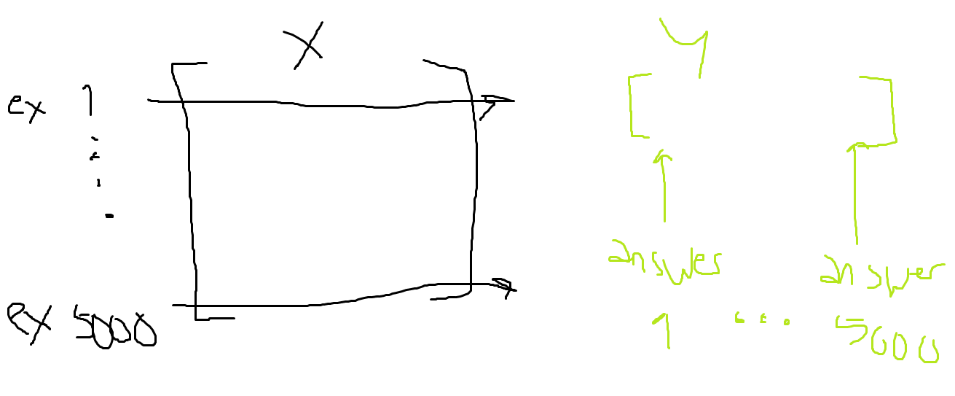 X
Y
ex 1
ex 5000
answer
answer
1 ... 5000